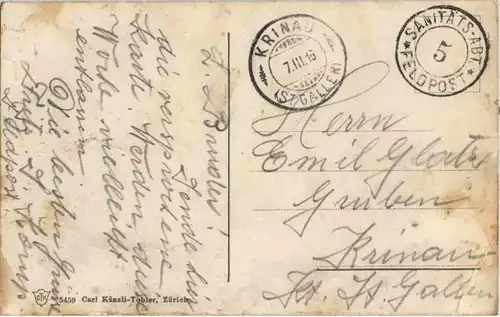 L. Bruder!
Sende dir
die versprochene
Karte. Werden diese
Woche vielleicht
entlassen.
Die besten Grüsse
Feldpost
5459 Carl Künzli-Tobler, Zürich.
KRINAU
7.III.16
(ST. GALLEN)
SANITÄTS-ABT.
5
FELDPOST
Herrn
Emil Glatz
Gruben
Krinau
Kt. St. Gallen